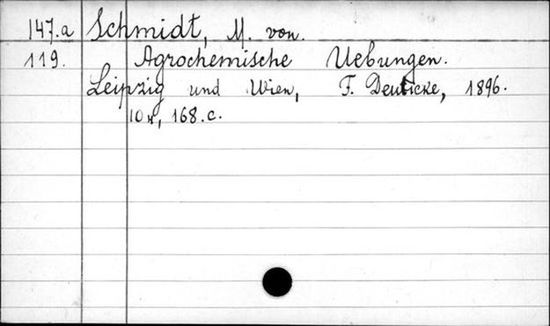 147.a Schmidt, M. von.
119. Agrochemische Uebungen.
Leipzig und Wien, F. Deuticke, 1896.
10 н, 168.c.